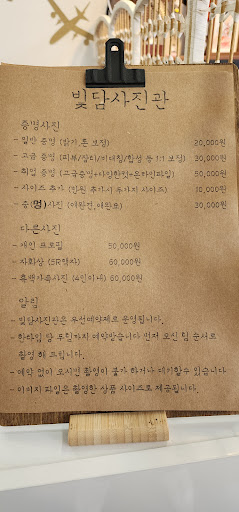 빛담사진관
증명사진
- 일반 증명 (밝기,톤 보정) 20,000원
- 고급 증명 (피부/잡티/비대칭/합성 등 1:1 보정) 30,000원
- 취업 증명 (고급증명+사이즈한컷+온라인파일) 50,000원
- 사이즈 추가 (인원 추가시 두가지 사이즈) 10,000원
- 숨(명)사진 (애완견,애완묘) 30,000원
다른사진
- 개인 프로필 50,000원
- 자화상 (5R액자) 60,000원
- 흑백가족사진 (4인이내) 60,000원
알림
- 빛담사진관은 우선예약제로 운영됩니다.
- 한타임 당 두팀까지 예약받습니다 먼저 오신 팀 순서로
촬영 해 드립니다.
- 예약 없이 오시면 촬영이 불가 하거나 대기할수 있습니다
- 이미지 파일은 촬영한 상품 사이즈로 제공됩니다.